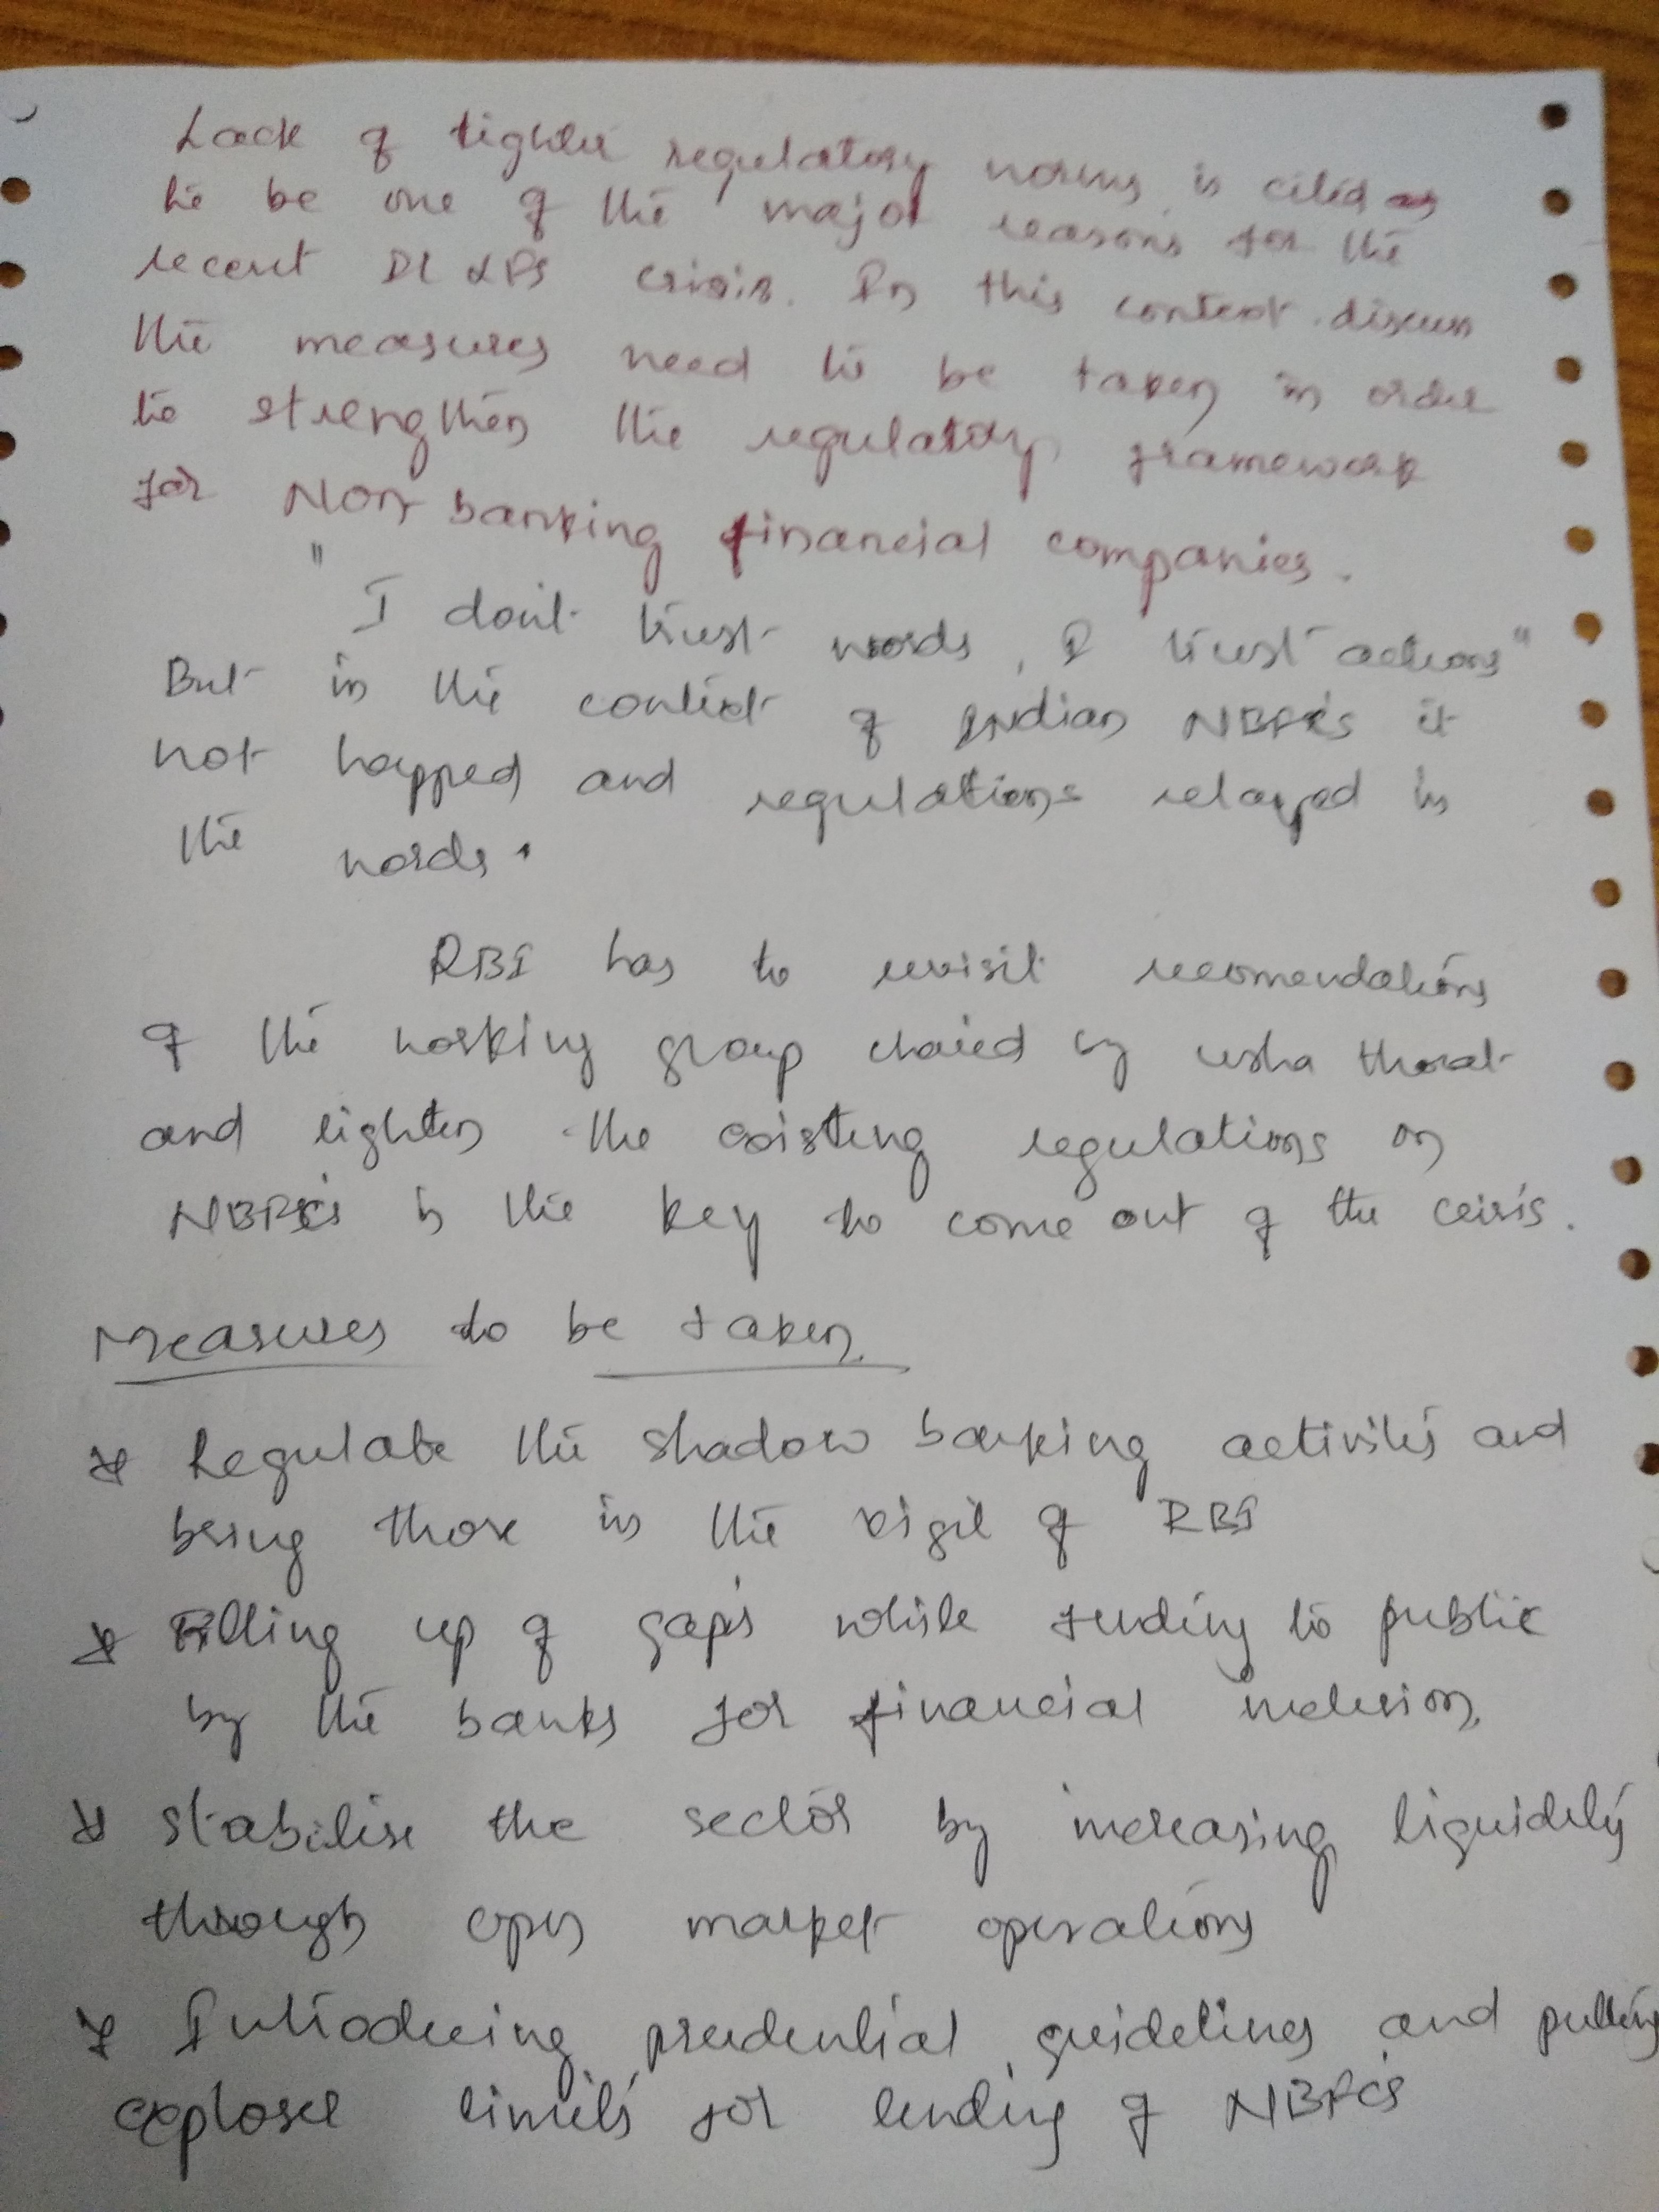 Lack of tighter regulatory norms is cited as
to be one of the major reasons for the
recent IL&FS crisis. In this context discuss
the measures need to be taken in order
to strengthen the regulatory framework
for Non banking financial companies.
"I don't trust words, I trust actions"
But in the context of Indian NBFC's it
not happed and regulations relayed in
the words.
RBI has to revisit recomendations
of the working group chaired by usha thorat
and tighten the existing regulations on
NBFC's is the key to come out of the crisis.
Measures to be taken
* Regulate the shadow banking activities and
bring those in the vigil of RBI
* Filling up of gaps while funding to public
by the banks for financial inclusion.
* Stabilise the sector by increasing liquidity
through open market operations
* Introducing prudential guidelines and putting
exposer limits for lending of NBFC's